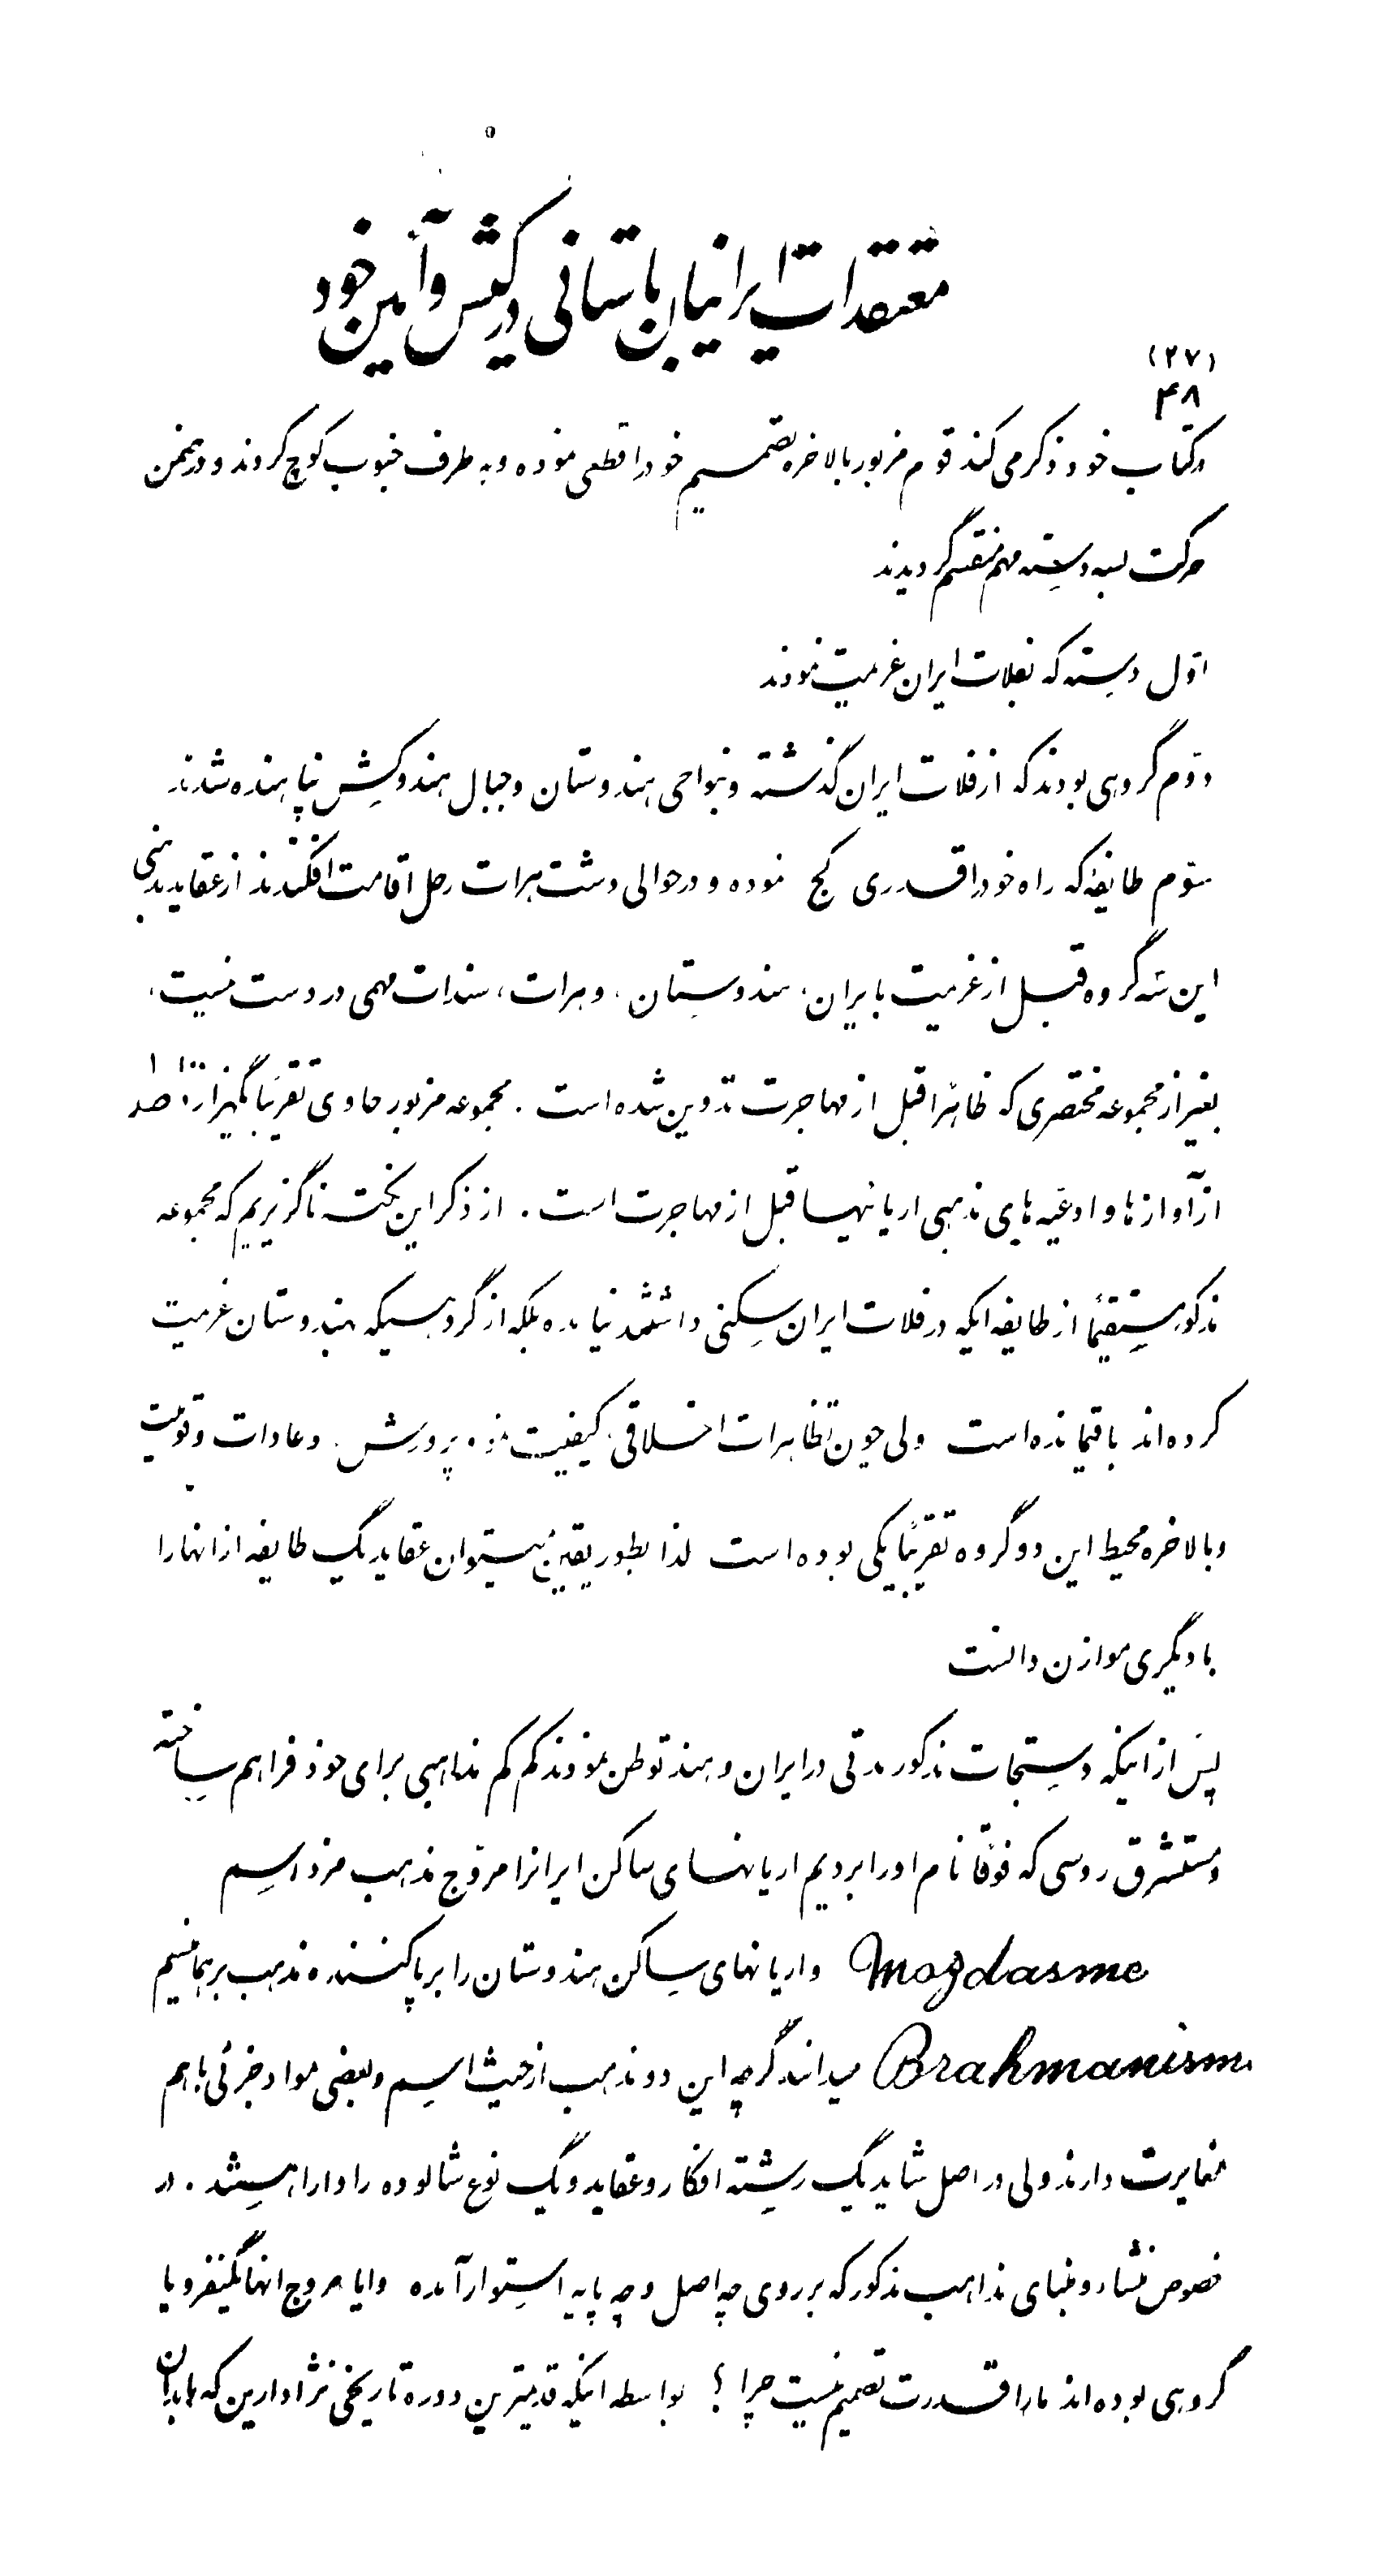 معتقدات ایرانیان باستانی در کیش و آئین خود
(۲۷)
۴۸
در کتاب خود ذکر می کند قوم مزبور بالاخره تصمیم خود را قطعی نموده و به طرف جنوب کوچ کردند و در ضمن
حرکت بسه دسته مهم منقسم گردیدند
اول دسته که بفلات ایران عزیمت نمودند
دوم گروهی بودند که از فلات ایران گذشته و بنواحی هندوستان و جبال هندوکش پناهنده شدند
سوم طایفه که راه خود را قدری کج نموده و در حوالی دشت هرات رحل اقامت افکندند از عقاید دینی
این سه گروه قبل از عزیمت بایران، هندوستان، و هرات، سندات مهمی در دست نیست،
بغیر از مجموعه مختصری که ظاهراً قبل از مهاجرت تدوین شده است. مجموعه مزبور حاوی تقریباً یکهزار تا صد
از آوازها و ادعیه های مذهبی اریانیها قبل از مهاجرت است. از ذکر این نکته ناگزیریم که مجموعه
مذکور مستقیماً از طایفه ایکه در فلات ایران سکنی داشتند نیامده بلکه از گروهیکه بهندوستان عزیمت
کرده اند باقیمانده است ولی چون تظاهرات اخلاقی، کیفیت پرورش، و عادات و قومیت
و بالاخره محیط این دو گروه تقریباً یکی بوده است لذا بطور یقین نمیتوان عقاید یک طایفه از انها را
با دیگری موازن دانست
پس از اینکه دستجات مذکور مدتی در ایران و هند توطن نمودند کم کم مذاهبی برای خود فراهم ساخته
و مستشرق روسی که فوقاً نام او را بردیم اریانهای ساکن ایرانرا مروج مذهب مزداسم
Mozdasme و اریانهای ساکن هندوستان را برپا کننده مذهب برهمانیسم
Brahmanism میدانند گرچه این دو مذهب از حیث اسم و بعضی مواد جزئی با هم
مغایرت دارند ولی در اصل شاید یک رشته افکار و عقاید و یک نوع شالوده را دارا هستند. در
خصوص منشاء و مبنای مذاهب مذکور که بر روی چه اصل و چه پایه استوار آمده و ایا مروج انها یکنفر و یا
گروهی بوده اند ما را قدرت تصمیم نیست چرا؟ بواسطه اینکه قدیمترین دوره تاریخی نژاد ارین که ما بدان